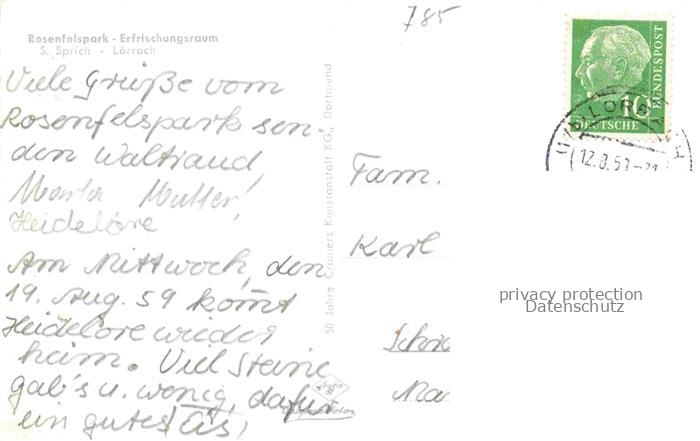 785
Rosenfelspark - Erfrischungsraum
S. Sprich - Lörrach
Viele Grüße vom
Rosenfelspark sen-
den Waltraud,
Marta Mutter,
Heidelore
Am Mittwoch, den
19. Aug. 59 kommt
Heidelore wieder
heim. Viel Steine
gab's u. wenig, dafür
ein gutes Eis,
50 Jahre Cramers Kunstanstalt KG., Dortmund
10
DEUTSCHE
BUNDESPOST
12.8.59
Fam.
Karl
privacy protection
Datenschutz